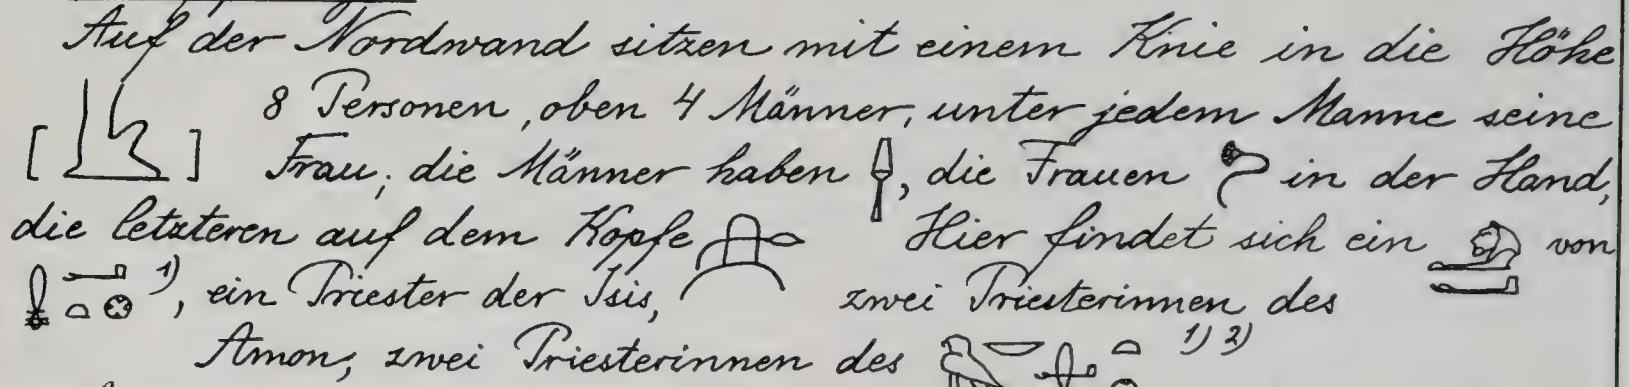 Auf der Nordwand sitzen mit einem Knie in die Höhe
[ ] 8 Personen, oben 4 Männer, unter jedem Manne seine
Frau; die Männer haben , die Frauen in der Hand,
die letzteren auf dem Kopfe Hier findet sich ein von
1), ein Priester der Isis, zwei Priesterinnen des
Amon, zwei Priesterinnen des 1) 2)